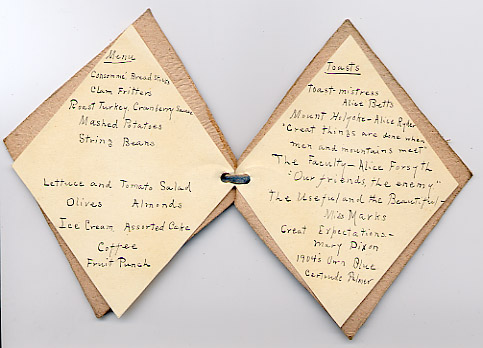 Menu
Consommé Bread Sticks
Clam Fritters
Roast Turkey, Cranberry Sauce
Mashed Potatoes
String Beans
Lettuce and Tomato Salad
Olives Almonds
Ice Cream, Assorted Cake
Coffee
Fruit Punch
Toasts
Toast-mistress
Alice Betts
Mount Holyoke - Alice Ryder
"Great things are done when
men and mountains meet"
The Faculty - Alice Forsyth
"Our friends, the enemy"
The Useful and the Beautiful -
Miss Marks
Great Expectations -
Mary Dixon
1904's Own Blue
Gertrude Palmer